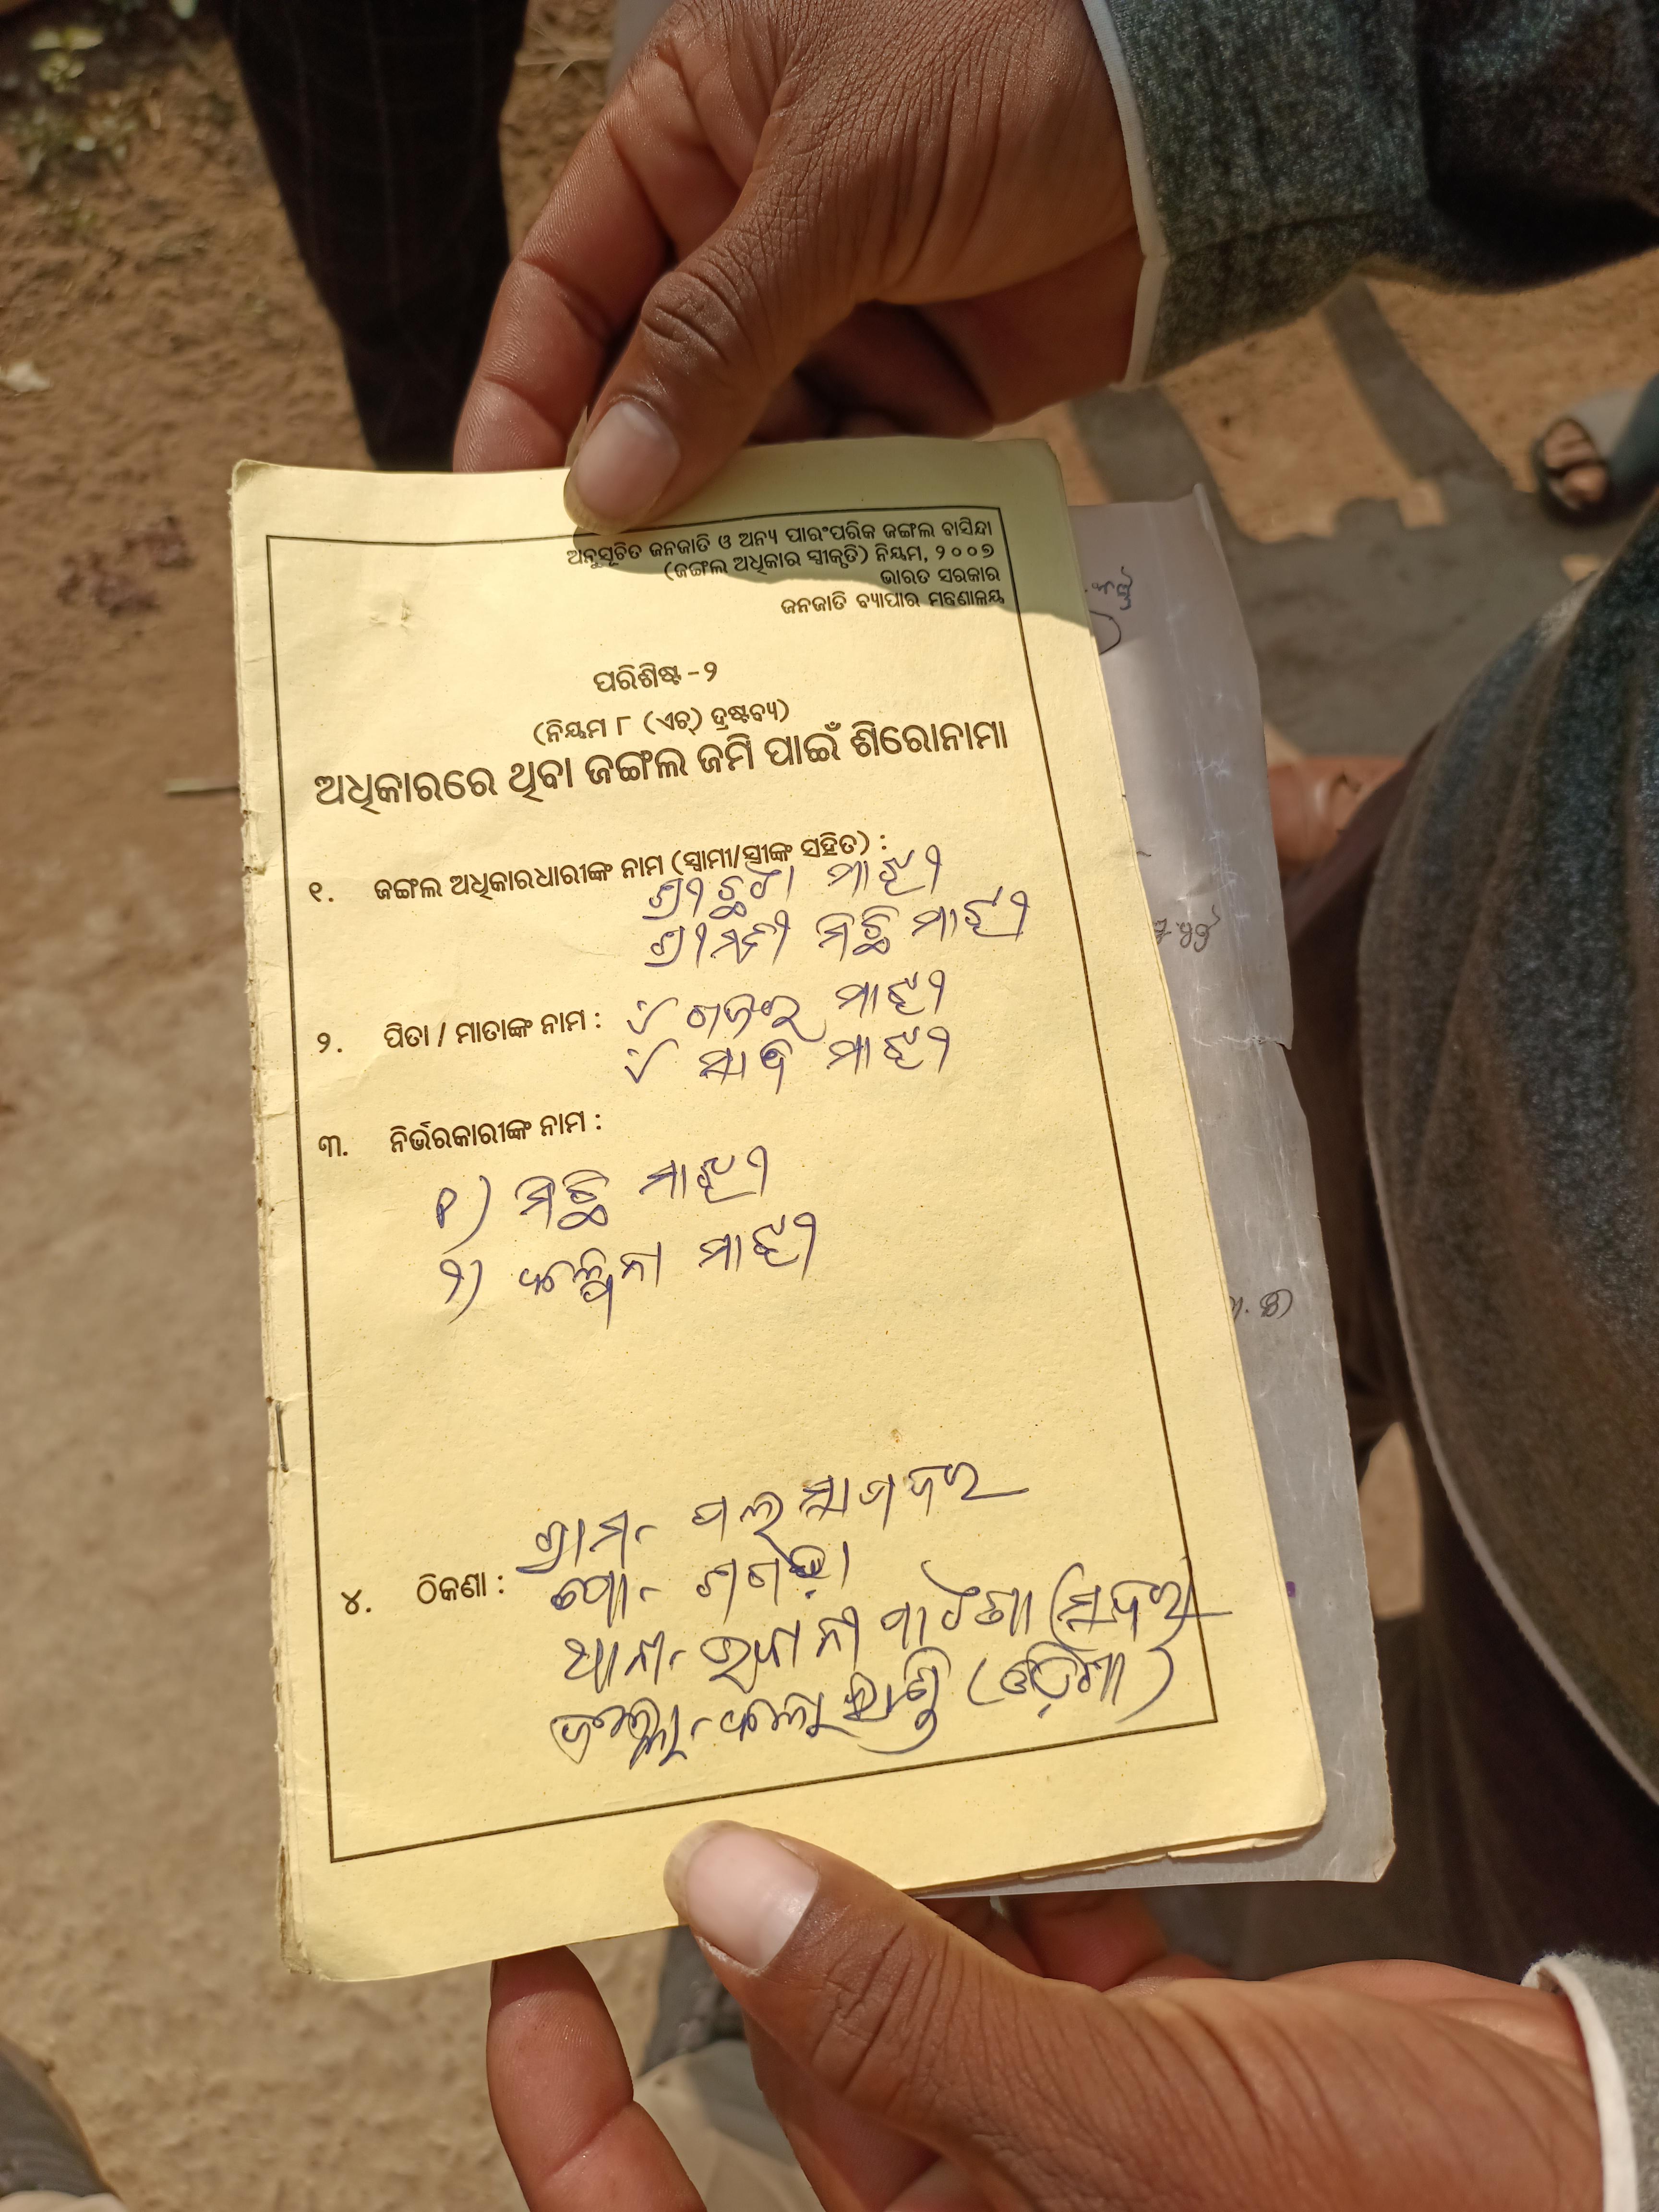 ଅନୁସୂଚିତ ଜନଜାତି ଓ ଅନ୍ୟ ପାରଂପରିକ ଜଙ୍ଗଲ ବାସିନ୍ଦା
(ଜଙ୍ଗଲ ଅଧିକାର ସ୍ୱୀକୃତି) ନିୟମ, ୨୦୦୭
ଭାରତ ସରକାର
ଜନଜାତି ବ୍ୟାପାର ମନ୍ତ୍ରଣାଳୟ
ପରିଶିଷ୍ଟ-୨
(ନିୟମ ୮ (ଏଚ୍) ଦ୍ରଷ୍ଟବ୍ୟ)
ଅଧିକାରରେ ଥିବା ଜଙ୍ଗଲ ଜମି ପାଇଁ ଶିରୋନାମା
୧. ଜଙ୍ଗଲ ଅଧିକାରଧାରୀଙ୍କ ନାମ (ସ୍ୱାମୀ/ସ୍ତ୍ରୀଙ୍କ ସହିତ) :
ଶ୍ରୀ ମାଝୀ
ଶ୍ରୀମତୀ ମିଛି ମାଝୀ
୨. ପିତା / ମାତାଙ୍କ ନାମ : ମାଝୀ
ମାଝୀ
୩. ନିର୍ଭରକାରୀଙ୍କ ନାମ :
୧) ମିଛି ମାଝୀ
୨) କଳ୍ପନା ମାଝୀ
ଗ୍ରାମ-
୪. ଠିକଣା : ପୋ-
ଥାନା- ଭବାନୀପାଟଣା ସଦର
ଜିଲ୍ଲା- କଳାହାଣ୍ଡି (ଓଡ଼ିଶା)